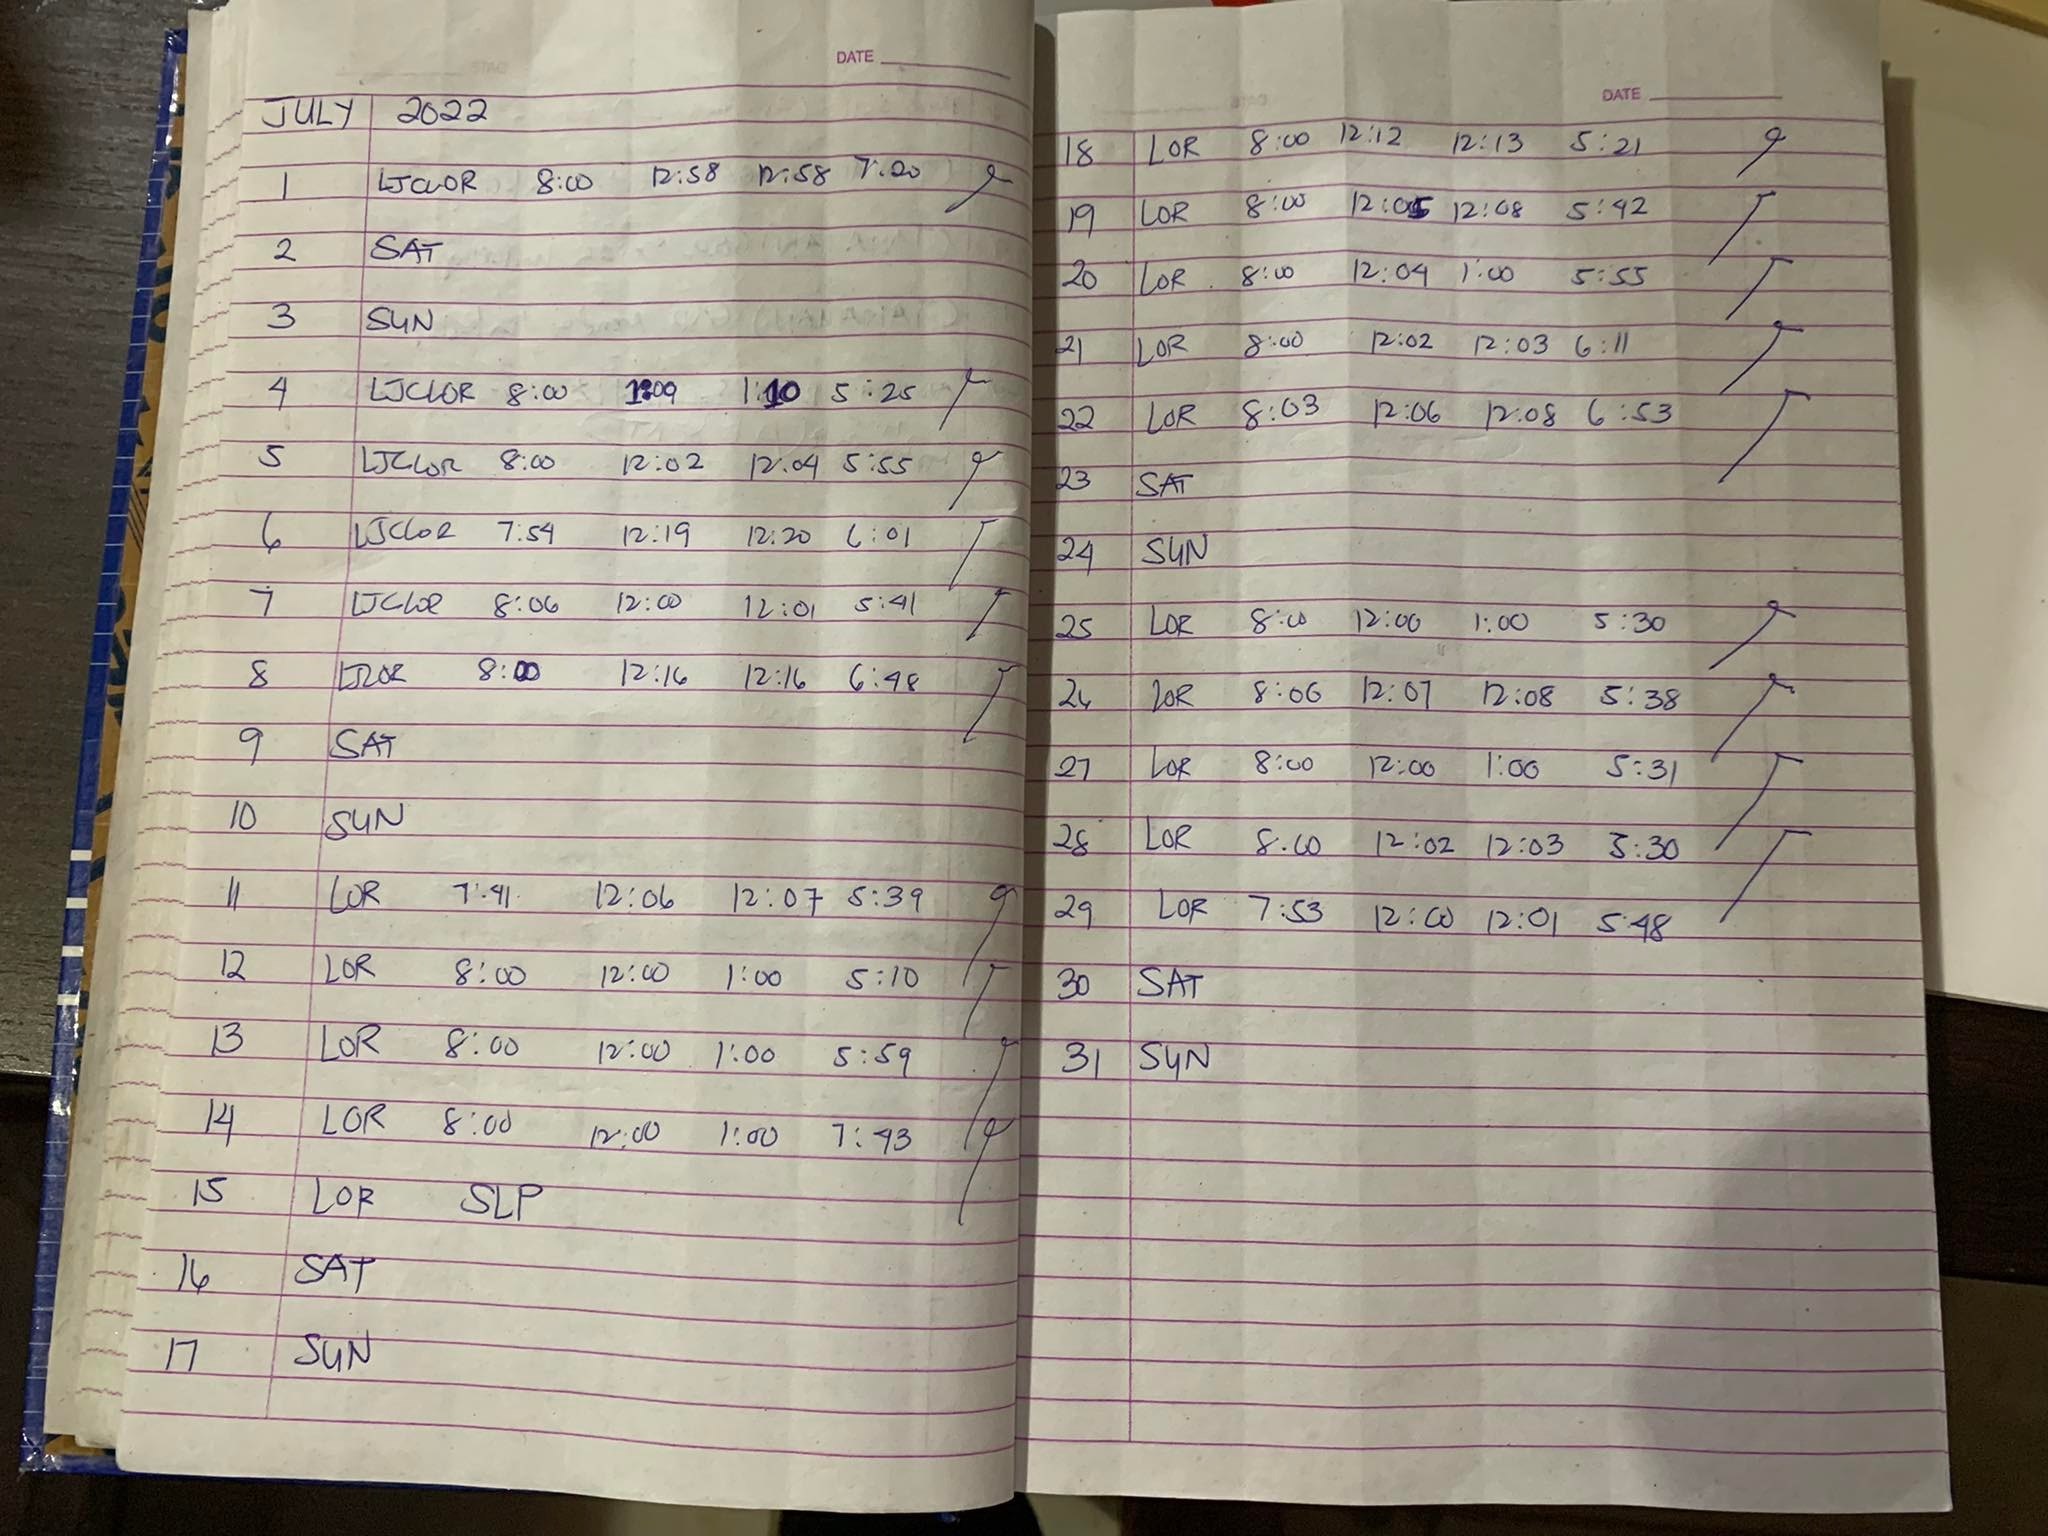 DATE
JULY 2022
1 LJCLOR 8:00 12:58 12:58 7:20
2 SAT
3 SUN
4 LJCLOR 8:00 1:09 1:10 5:25
5 LJCLOR 8:00 12:02 12:04 5:55
6 LJCLOR 7:54 12:19 12:20 6:01
7 LJCLOR 8:06 12:00 12:01 5:41
8 LJLOR 8:00 12:16 12:16 6:48
9 SAT
10 SUN
11 LOR 7:41 12:06 12:07 5:39
12 LOR 8:00 12:00 1:00 5:10
13 LOR 8:00 12:00 1:00 5:59
14 LOR 8:00 12:00 1:00 7:43
15 LOR SLP
16 SAT
17 SUN
DATE
18 LOR 8:00 12:12 12:13 5:21
19 LOR 8:00 12:05 12:08 5:42
20 LOR 8:00 12:04 1:00 5:55
21 LOR 8:00 12:02 12:03 6:11
22 LOR 8:03 12:06 12:08 6:53
23 SAT
24 SUN
25 LOR 8:00 12:00 1:00 5:30
26 LOR 8:06 12:07 12:08 5:38
27 LOR 8:00 12:00 1:00 5:31
28 LOR 8:00 12:02 12:03 5:30
29 LOR 7:53 12:00 12:01 5:48
30 SAT
31 SUN